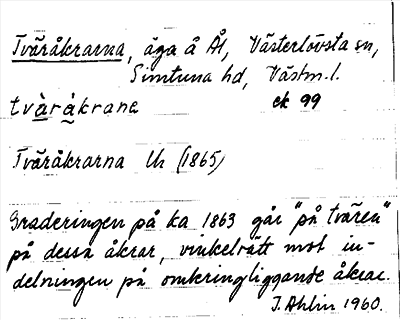 Tväråkrarna, äga å Ål, Västerlövsta sn,
Simtuna hd, Västm.l.
tvä̀rå̀krana ek 99
Tväråkrarna Uh (1865)
Graderingen på ka 1863 går "på tvären"
på dessa åkrar, vinkelrätt mot in-
delningen på omkringliggande åkrar.
J. Ahlin 1960.